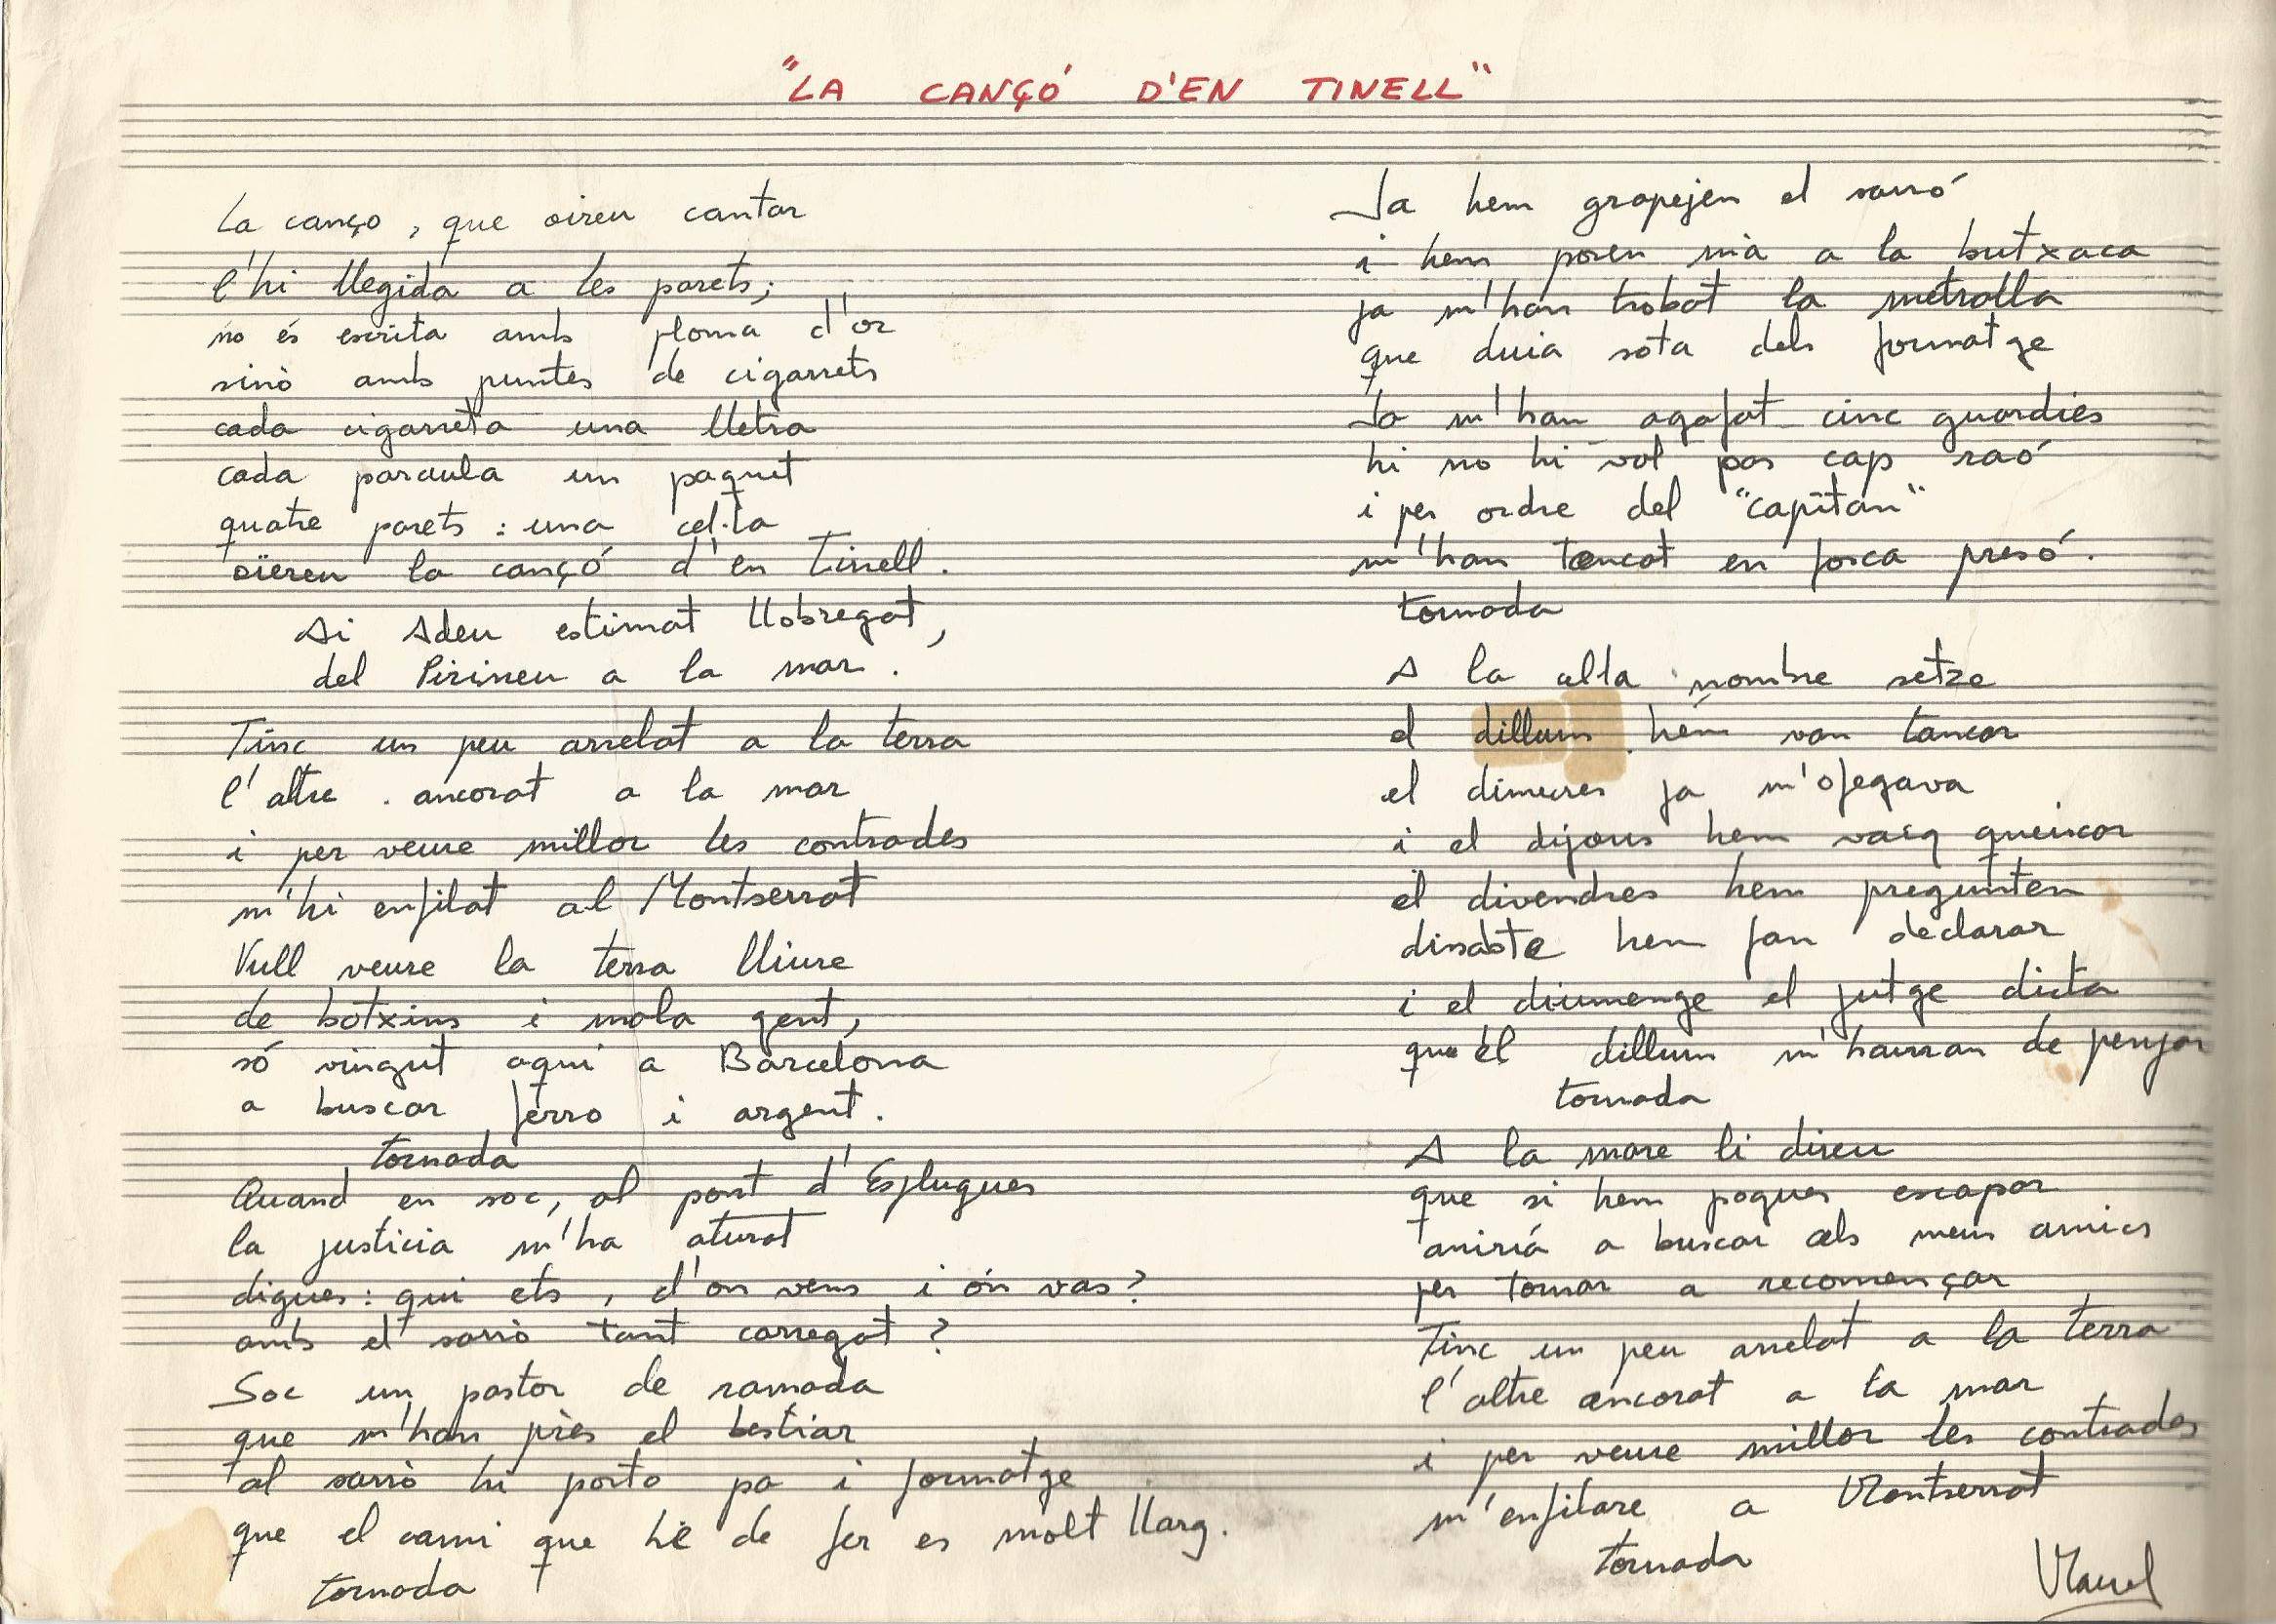 "LA CANÇÓ D'EN TINELL"
La canço, que oireu cantar
l'hi llegida a les parets;
no és escrita amb ploma d'or
sinò amb puntes de cigarrets
cada cigarreta una lletra
cada paraula un paquet
quatre parets : una cel·la
oïereu la cançó d'en Tinell.
Ai Adeu estimat Llobregat,
del Pirineu a la mar.
Tinc un peu arrelat a la terra
l'altre ancorat a la mar
i per veure millor les contrades
m'hi enfilat al Montserrat
Vull veure la terra lliure
de botxins i mala gent,
só vingut aqui a Barcelona
a buscar ferro i argent.
tornada
Quand en soc, al pont d'Esplugues
la justicia m'ha aturat
digues : qui ets, d'on vens i on vas?
amb el sarrò tant carregat?
Soc un pastor de ramada
que m'han près el bestiar
al sarrò hi porto pa i formatge
que el cami que hè de fer es molt llarg.
tornada
Ja hem grapejen el sarró
i hem posen mà a la butxaca
ja m'han trobat la metralla
que duia sota dels formatge
Ja m'han agafat cinc guardies
hi no hi vol pas cap raó
i per ordre del "capitan"
m'han tancat en fosca presó.
tornada
A la al·la nombre setze
el dilluns hem van tancar
el dimecres ja m'ofegava
i el dijous hem vaig queixar
el divendres hem pregunten
dissabte hem fan declarar
i el diumenge el jutge dicta
que el dilluns m'hauran de penjar
tornada
A la mare li direu
que si hem pogues escapar
aniriá a buscar als meus amics
per tornar a recomençar
Tinc un peu arrelat a la terra
l'altre ancorat a la mar
i per veure millor les contrades
m'enfilare a Montserrat
tornada
Manel